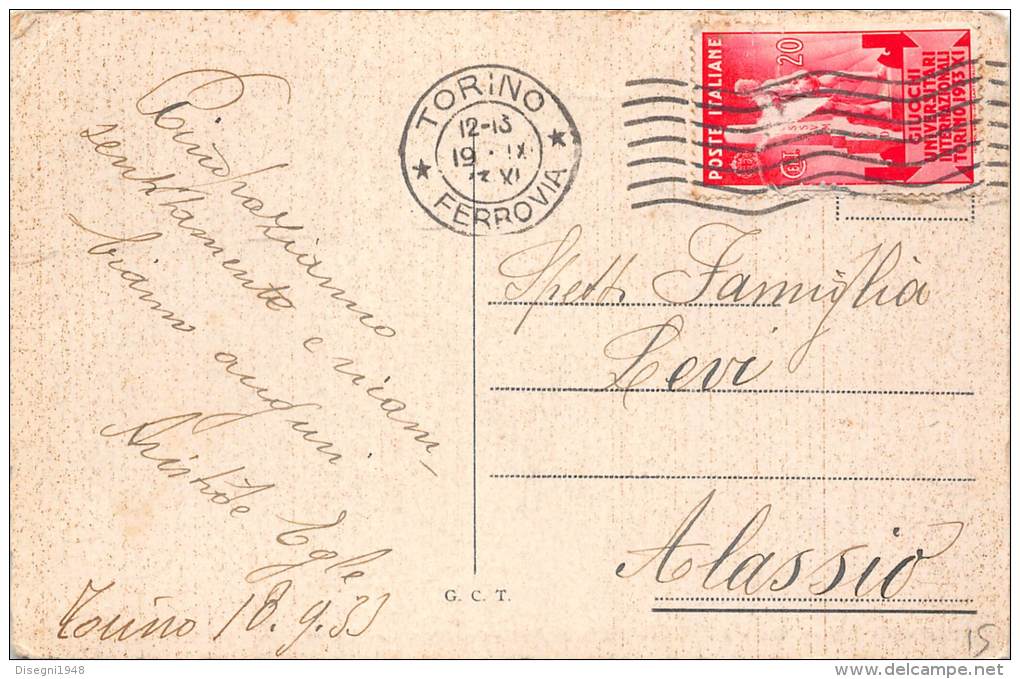 Ringraziamo
sentitamente e ricam-
biamo auguri.
Aristide Egle
Torino 18.9.33
TORINO
12-13
19 · IX
XI
FERROVIA
POSTE ITALIANE
20
GIUOCHI
UNIVERSITARI
INTERNAZIONALI
TORINO 1933 XI
Spett. Famiglia
Levi
Alassio
G. C. T.
15
Disegni1948
www.delcampe.net